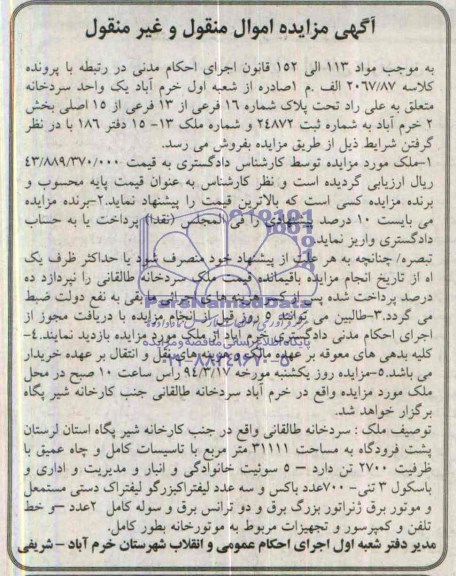 آگهی مزایده اموال منقول و غیر منقول
به موجب مواد ۱۱۳ الی ۱۵۲ قانون اجرای احکام مدنی در رتبطه با پرونده
کلاسه ۲۰۶۷/۸۷ الف .م ۱صادره از شعبه اول خرم آباد یک واحد سردخانه
متعلق به علی راد تحت پلاک شماره ۱۶ فرعی از ۱۳ فرعی از ۱۵ اصلی بخش
۲ خرم آباد به شماره ثبت ۲۴۸۷۲ و شماره ملک ۱۳- ۱۵ دفتر ۱۸۶ با در نظر
گرفتن شرایط ذیل از طریق مزایده بفروش می رسد.
۱-ملک مورد مزایده توسط کارشناس دادگستری به قیمت ۴۳/۸۸۹/۳۷۰/۰۰۰
ریال ارزیابی گردیده است و نظر کارشناس به عنوان قیمت پایه محسوب و
برنده مزایده کسی است که بالاترین قیمت را پیشنهاد نماید.۲-برنده مزایده
می بایست ۱۰ درصد پیشنهادی را فی المجلس (نقدا) پرداخت یا به حساب
دادگستری واریز نماید.
تبصره/ چنانچه به هر علت از پیشنهاد خود منصرف شود یا حداکثر ظرف یک
اه از تاریخ انجام مزایده باقیمانده قیمت ملک سردخانه طالقانی را نپردازد ده
درصد پرداخت شده پس از کسر هزینه های اجرایی مابقی به نفع دولت ضبط
می گردد.۳-طالبین می توانند ۵ روز قبل از انجام مزایده با دریافت مجوز از
اجرای احکام مدنی دادگستری خرم آباد از ملک مورد مزایده بازدید نمایند.۴-
کلیه بدهی های معوقه بر عهده مالک و هزینه های نقل و انتقال بر عهده خریدار
می باشد.۵-مزایده روز یکشنبه مورخه ۹۴/۳/۱۷ راس ساعت ۱۰ صبح در محل
ملک مورد مزایده واقع در خرم آباد سردخانه طالقانی جنب کارخانه شیر پگاه
برگزار خواهد شد.
توصیف ملک : سردخانه طالقانی واقع در جنب کارخانه شیر پگاه استان لرستان
پشت فرودگاه به مساحت ۳۱۱۱۱.متر مربع با تاسیسات کامل و چاه عمیق با
ظرفیت ۲۷۰۰ تن دارد – ۵ سوئیت خانوادگی و انبار و مدیریت و اداری و
باسکول ۳ تنی- ۷۰۰عدد باکس و سه عدد لیفتراکبزرگو لیفتراک دستی مستمعل
و موتور برق ژنراتور بزرگ برق و دو ترانس برق و سوله کامل ۲عدد –و خط
تلفن و کمپرسور و تجهیزات مربوط به موتورخانه بطور کامل.
مدیر دفتر شعبه اول اجرای احکام عمومی و انقلاب شهرستان خرم آباد – شریفی